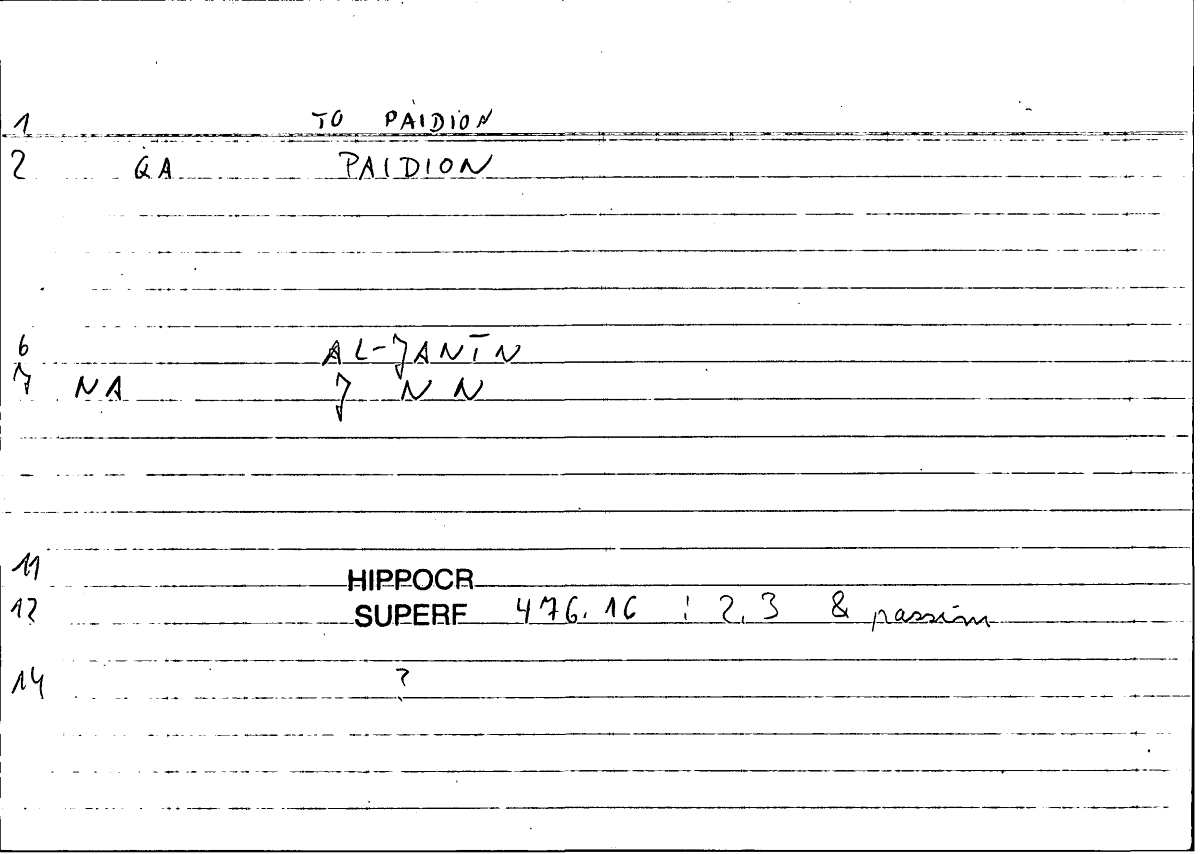 1 TO PAIDION
2 QA PAIDION
6 AL-JANĪN
7 NA J N N
11 HIPPOCR
12 SUPERF 476.16 : 2,3 & passim
14 ?